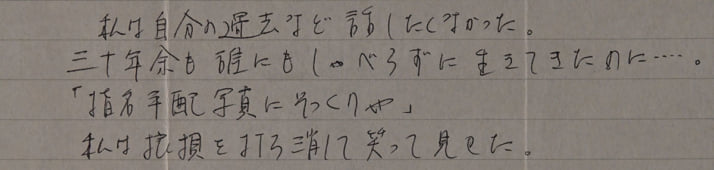 私は自分の過去など話したくなかった。
三十年余も誰にもしゃべらずに生きてきたのに……。
「指名手配写真にそっくりや」
私は を打ち消して笑って見せた。